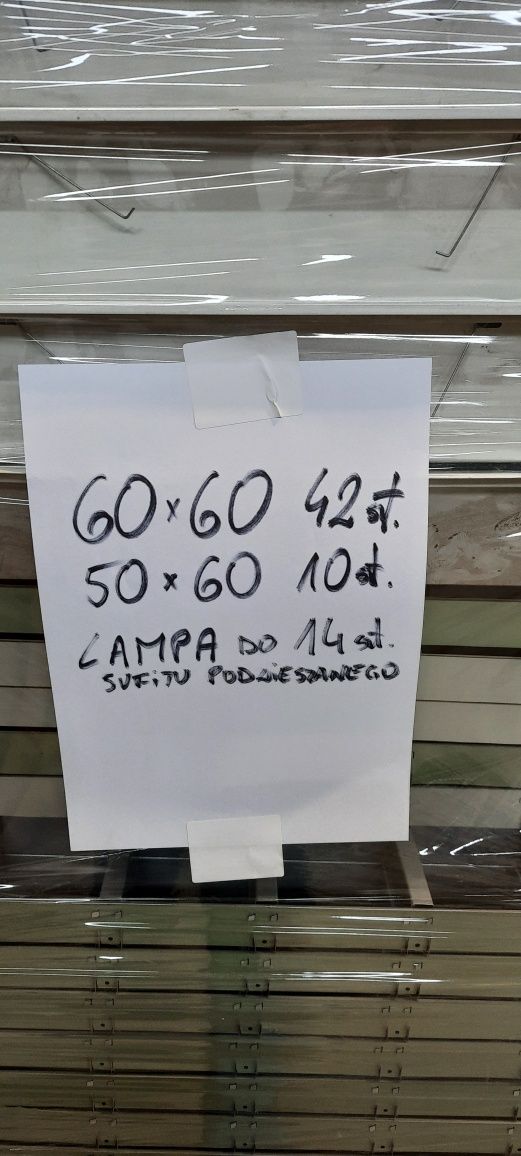 60 x 60 42 szt.
50 x 60 10 szt.
LAMPA DO 14 szt.
SUFITU PODWIESZANEGO